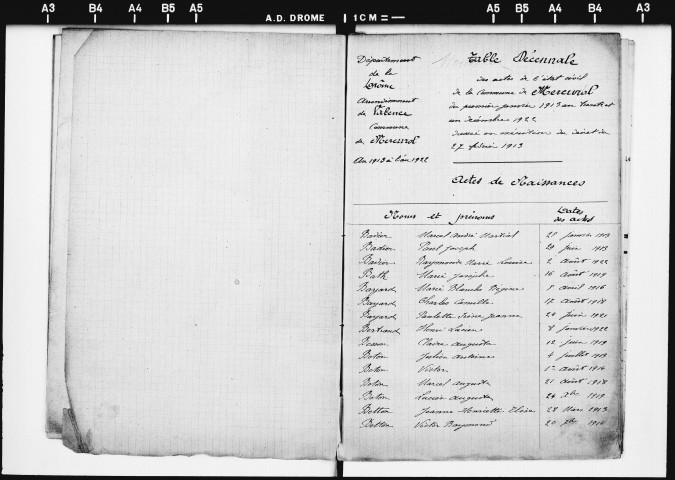 A3 B4 A4 B5 A5 A.D. DROME 1CM A5 B5 A4 B4 A3
Département
de la
Drôme
Arrondissement
de Valence
Commune
de Mercurol
An 1913 à l'an 1922
Table Décennale
des actes de l'état civil
de la Commune de Mercurol
du premier janvier 1913 au trente et
un décembre 1922
dressé en exécution du décret du
27 février 1913
Actes de Naissances
Noms et prénoms Dates des actes
Marcel André Martial 28 janvier 1919
Badion Paul Joseph 20 juin 1919
Raymonde Marie Louise 2 août 1922
Bath Marie 16 août 1919
Bayard Marie Blanche 8 avril 1916
Bayard Charles Camille 17 août 1918
Bayard Paulette Jeanne 24 juin 1921
Bertrand Henri Lucien 8 janvier 1922
Claire Augusta 12 juin 1919
Boton Julien Antoine 4 juillet 1919
Boton Victor 1er août 1914
Boton Marcel Auguste 21 août 1918
Boton Lucien Auguste 24 Xbre 1919
Botton Jeanne Henriette 28 Mars 1913
Botton Victor Raymond 20